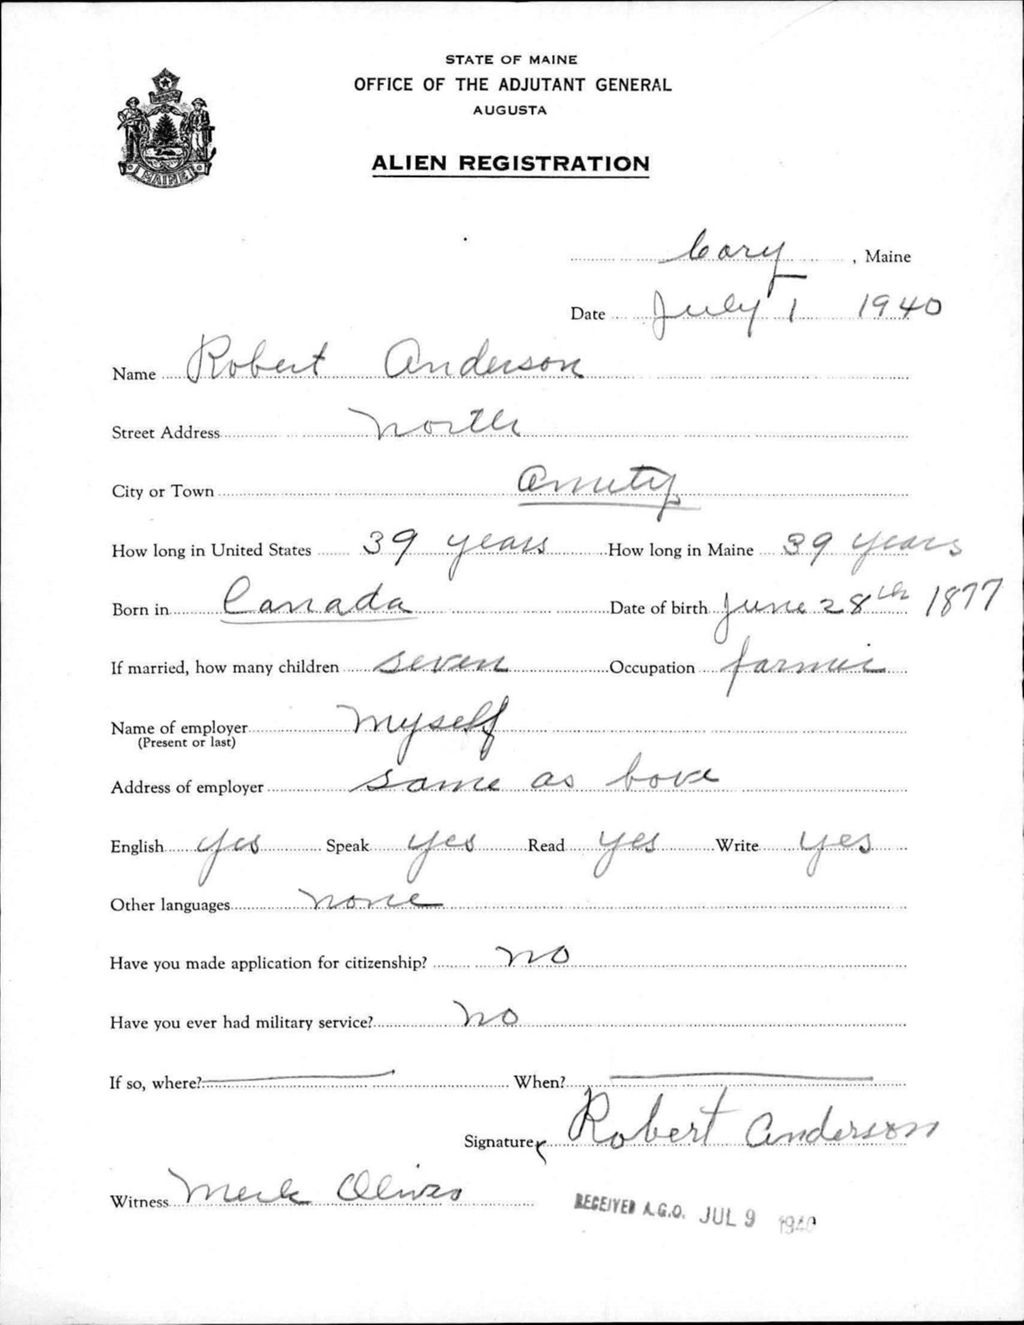 STATE OF MAINE
OFFICE OF THE ADJUTANT GENERAL
AUGUSTA
ALIEN REGISTRATION
MAINE
Cary, Maine
Date July 1 1940
Name Robert Anderson
Street Address North
City or Town Amity
How long in United States 39 years How long in Maine 39 years
Born in Canada Date of birth June 28th 1877
If married, how many children seven Occupation farmer
Name of employer myself
(Present or last)
Address of employer same as bove
English yes Speak yes Read yes Write yes
Other languages none
Have you made application for citizenship? no
Have you ever had military service? no
If so, where? When?
Signature Robert Anderson
Witness Oliver
RECEIVED A.G.O. JUL 9 1940